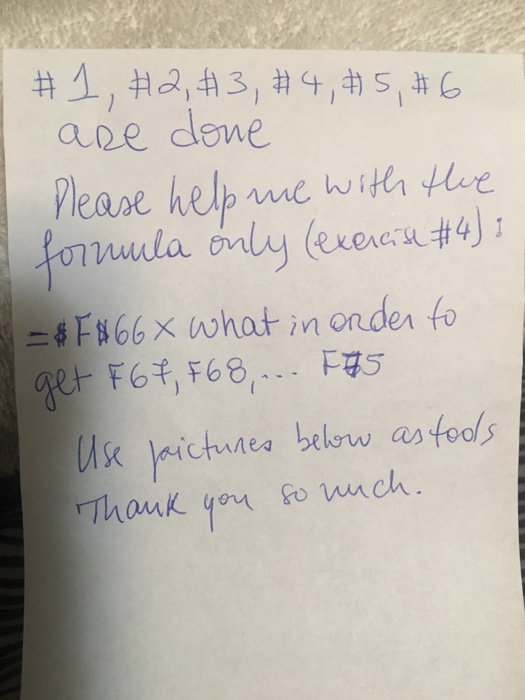 #1, #2, #3, #4, #5, #6
are done
Please help me with the
formula only (exercise #4):
=$F$66 x what in order to
get F67, F68, ... F75
Use pictures below as tools
Thank you so much.